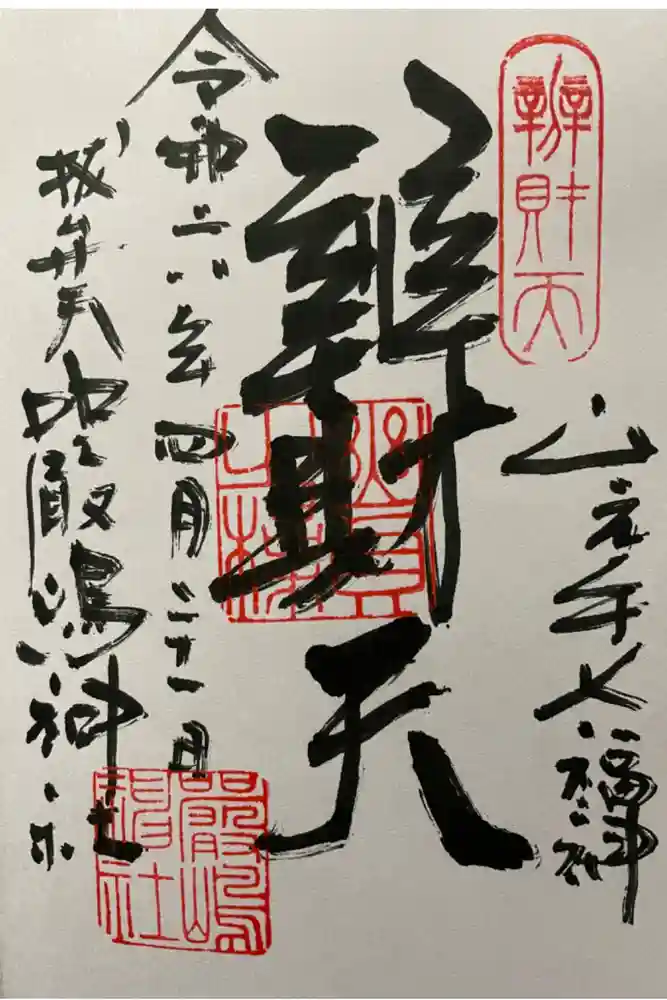 辨財天
山之手七福神
辨財天
令和六年四月二十一日
抜弁天
嚴嶋神社
嚴嶋神社